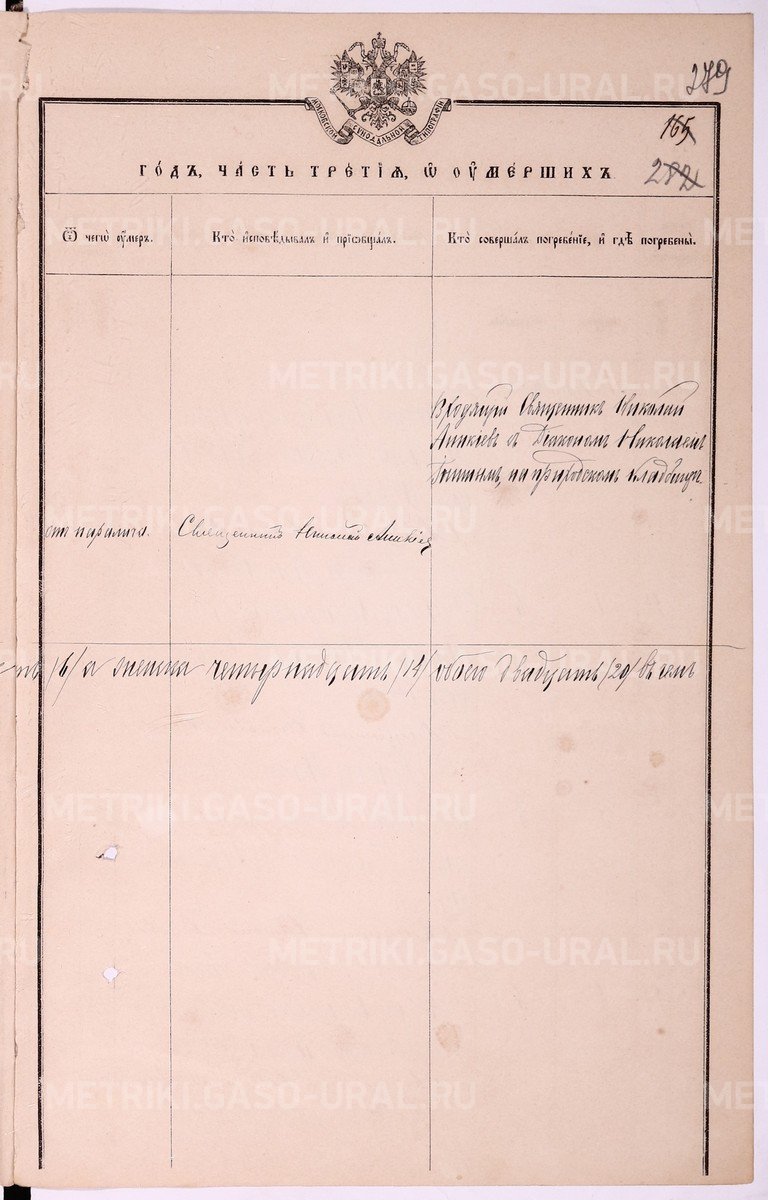 279
МОСКОВСКОЙ СѴНОДАЛЬНОЙ ТИПОГРАФІИ
165
282
ГО́ДЪ, ЧА́СТЬ ТРЕ́ТІѦ, Ѡ ОУМЕ́РШИХЪ
Ѿ чегѡ̀ оу́меръ.
Кто̀ и҆сповѣ́дывалъ и҆ прїѡбща́лъ.
Кто̀ соверша́лъ погребе́нїе, и҆ гдѣ̀ погребены̀.
Входящій Священникъ Николай
Аникіевъ съ Діакономъ Николаемъ
на приходскомъ кладбищѣ
отъ паралича.
Священникъ Николай Аникіевъ
/6/ а женска четырнадцать /14/ обоего двадцать /20/
METRIKI.GASO-URAL.RU